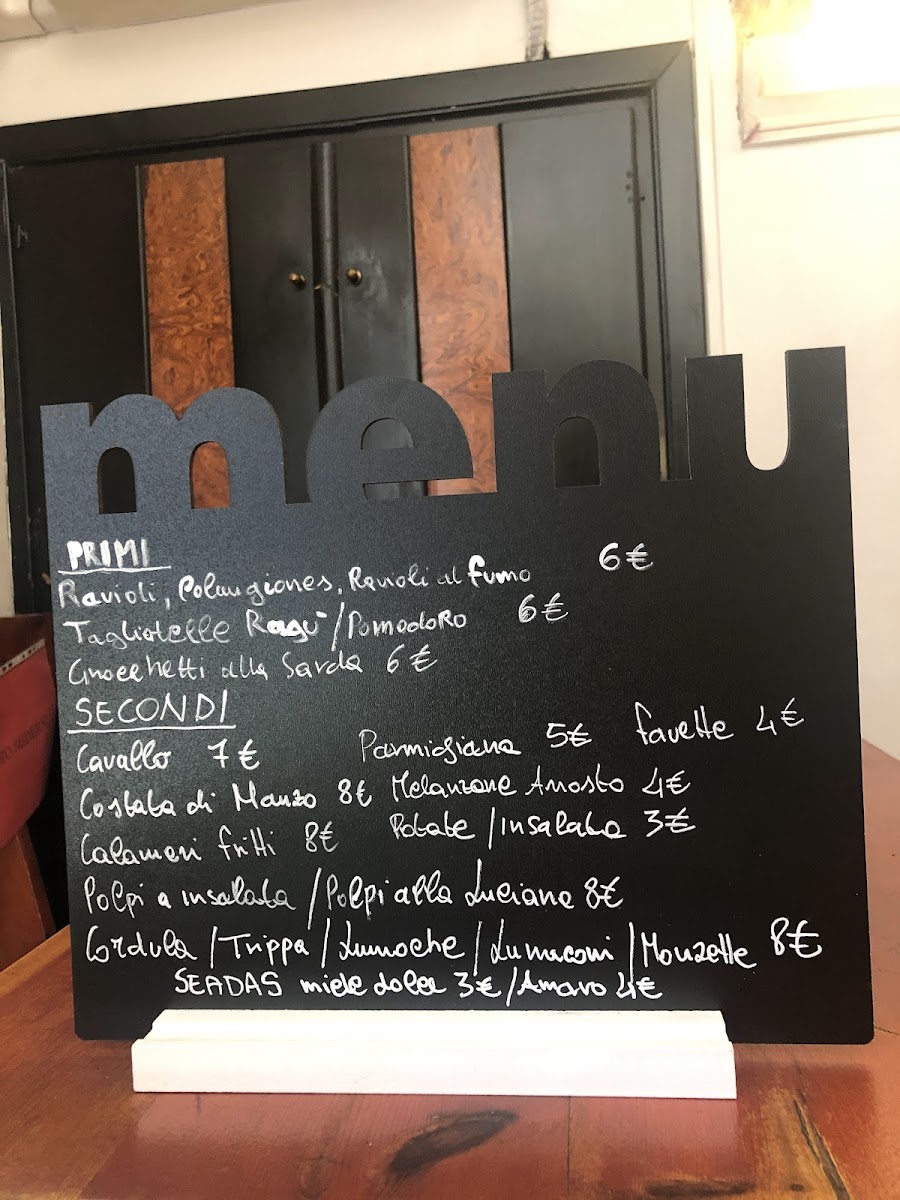 menu
PRIMI
Ravioli, Culurgiones, Ravioli al fumo 6€
Tagliatelle Ragù/Pomodoro 6€
Gnocchetti alla Sarda 6€
SECONDI
Cavallo 7€ Parmigiana 5€ favette 4€
Costata di Manzo 8€ Melanzane Arrosto 4€
Calamari fritti 8€ Patate/Insalata 3€
Polpi a insalata/Polpi alla Luciana 8€
Cordula/Trippa/Lumache/Lumaconi/Monzette 8€
SEADAS miele dolce 3€/Amaro 4€